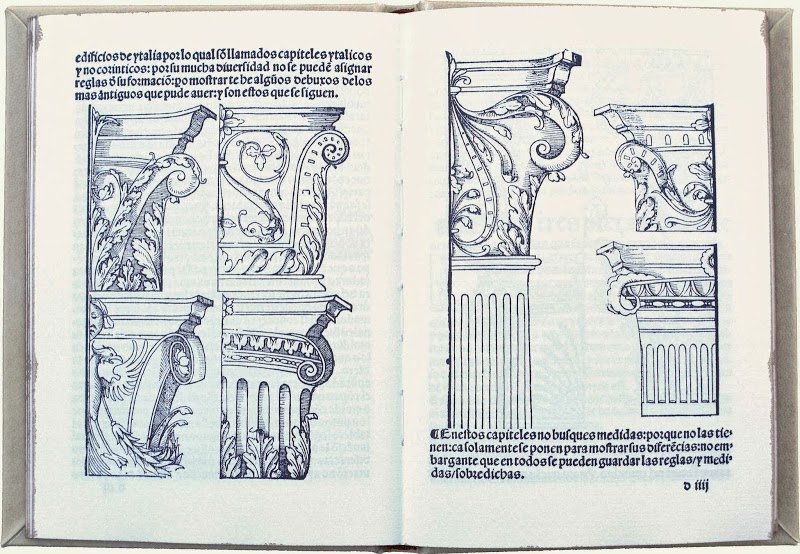 edificios de ytalia por lo qual sõ llamados capiteles ytalicos
y no corinticos: por su mucha diuersidad no se puedẽ asignar
reglas d̓ su formaciõ: ꝑo mostrarte he algũos debuxos delos
mas ãntiguos que pude auer: y son estos que se siguen.
¶ En estos capiteles no busques medidas: porque no las tie-
nen: ca solamente se ponen para mostrar sus diferẽcias: no em-
bargante que en todos se pueden guardar las reglas/y medi-
das/sobre dichas.
d iiij